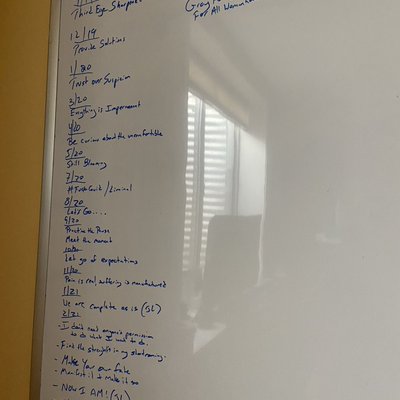 Third Eye Sharpened
12/19
Provide Solutions
1/20
Trust over Suspicion
3/20
Everything is Impermanent
4/20
Be curious about the uncomfortable
5/20
Still Blooming
7/20
#TrustGod/Liminal
8/20
Let's Go....
9/20
Practice the Pause
Meet the moment
10/20
Let go of expectations
11/20
Pain is real, suffering is manufactured
1/21
We are complete as is (JL)
2/21
- I don't need anyone's permission
to do what I want to do.
- Find the strength in my
- Make Your own fate
- Manifest it & make it so
- Now I AM! (JL)
Gray
For All